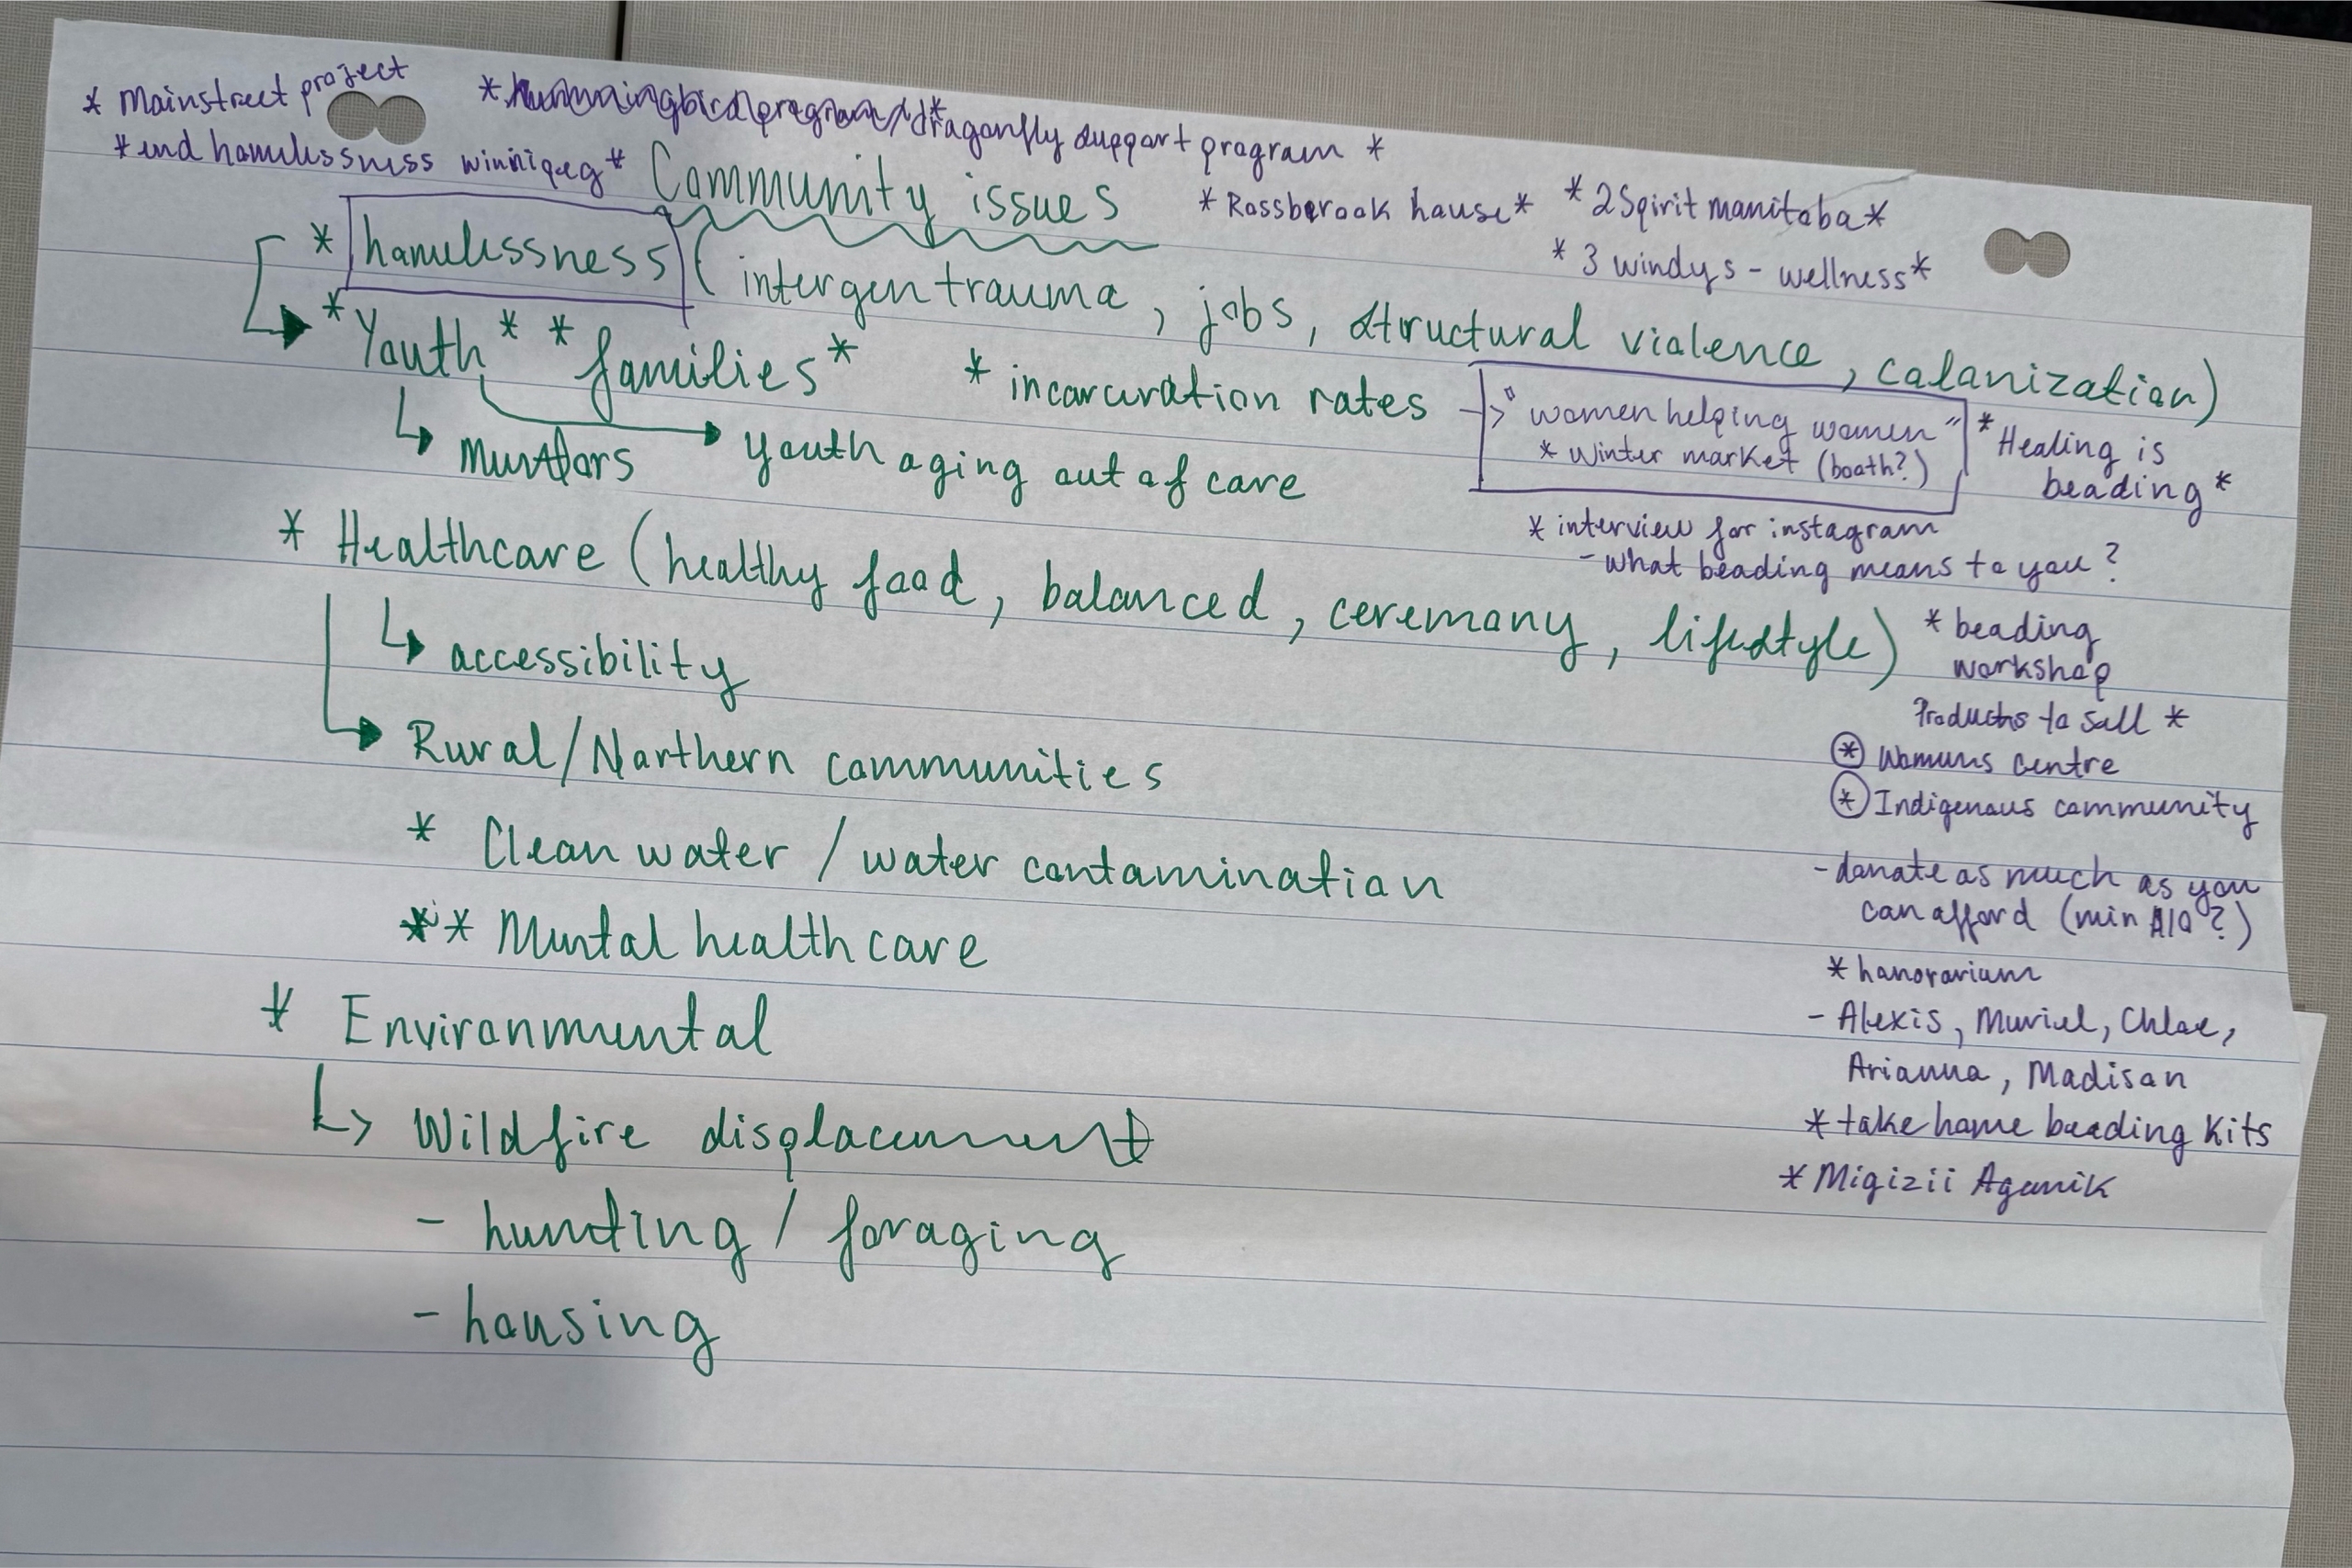 * Mainstreet project
* hummingbird program / * dragonfly support program *
* end homelessness winnipeg *
Community issues
* Rossbrook house *
* 2Spirit manitoba *
* 3 windys - wellness *
* homelessness (intergen trauma, jobs, structural violence, colonization)
* Youth * * families *
* incarceration rates
-> "women helping women"
* Winter market (booth?)
* Healing is
beading *
↳ mentors
youth aging out of care
* interview for instagram
- what beading means to you?
* Healthcare (healthy food, balanced, ceremony, lifestyle)
↳ accessibility
* beading
workshop
Products to sell *
↳ Rural/Northern communities
* Womens centre
* Indigenous community
* Clean water / water contamination
- donate as much as you
can afford (min $10?)
** Mental health care
* honorarium
* Environmental
- Alexis, Muriel, Chloe,
Arianna, Madison
↳ Wildfire displacement
* take home beading kits
* Migizii Agamik
- hunting / foraging
- housing